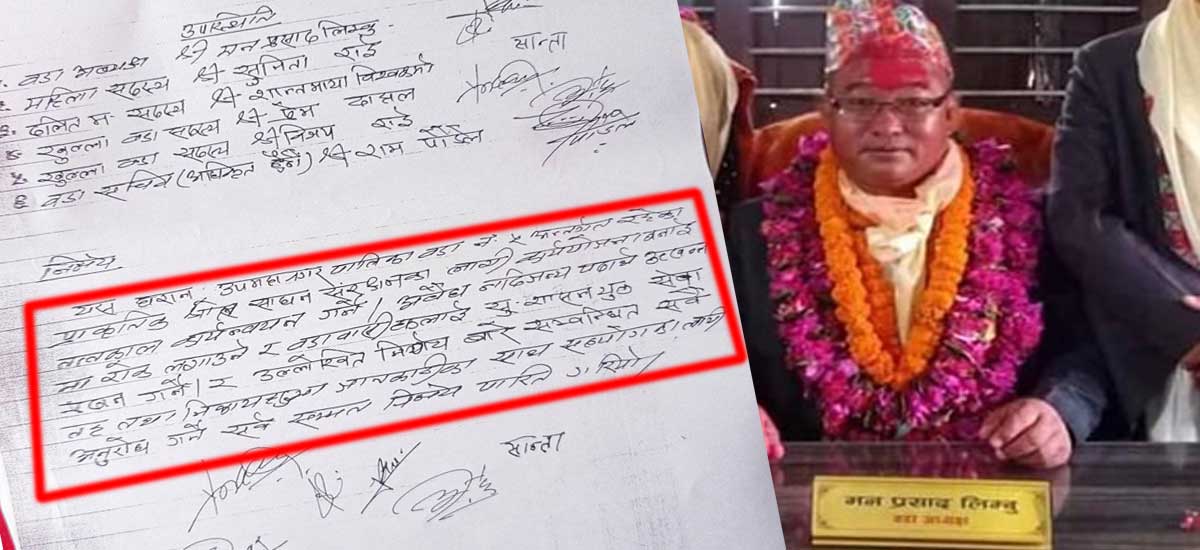 उपस्थिति
१. वडा अध्यक्ष श्री मन प्रसाद लिम्बु
२. महिला सदस्य श्री सुनिता राई
३. दलित म. सदस्य श्री शान्तमाया विश्वकर्मा
४ खुल्ला वडा सदस्य श्री प्रेम दाहाल
५ खुल्ला वडा सदस्य श्री विजय राई
६ वडा सचिव (अधिकृत छैठौं) श्री राम पौडेल
सान्ता
निर्णय
यस धरान उपमहानगर पालिका वडा नं. ५ अन्तर्गत रहेका
प्राकृतिक स्रोत साधन संरक्षणका लागी कार्ययोजना बनाई
तत्काल कार्यन्वयन गर्ने। अवैध नदिजन्य पदार्थ उत्खनन
मा रोक लगाउने र वडावासीहरुलाई सु-शासनयुक्त सेवा
प्रदान गर्ने। र उल्लेखित निर्णय बारे सम्वन्धित सबै
तह तथा निकायहरुमा जानकारीका साथ सहयोगका लागी
अनुरोध गर्ने सर्व सम्मत निर्णय पारित गरियो।
सान्ता
मन प्रसाद लिम्बु
वडा अध्यक्ष